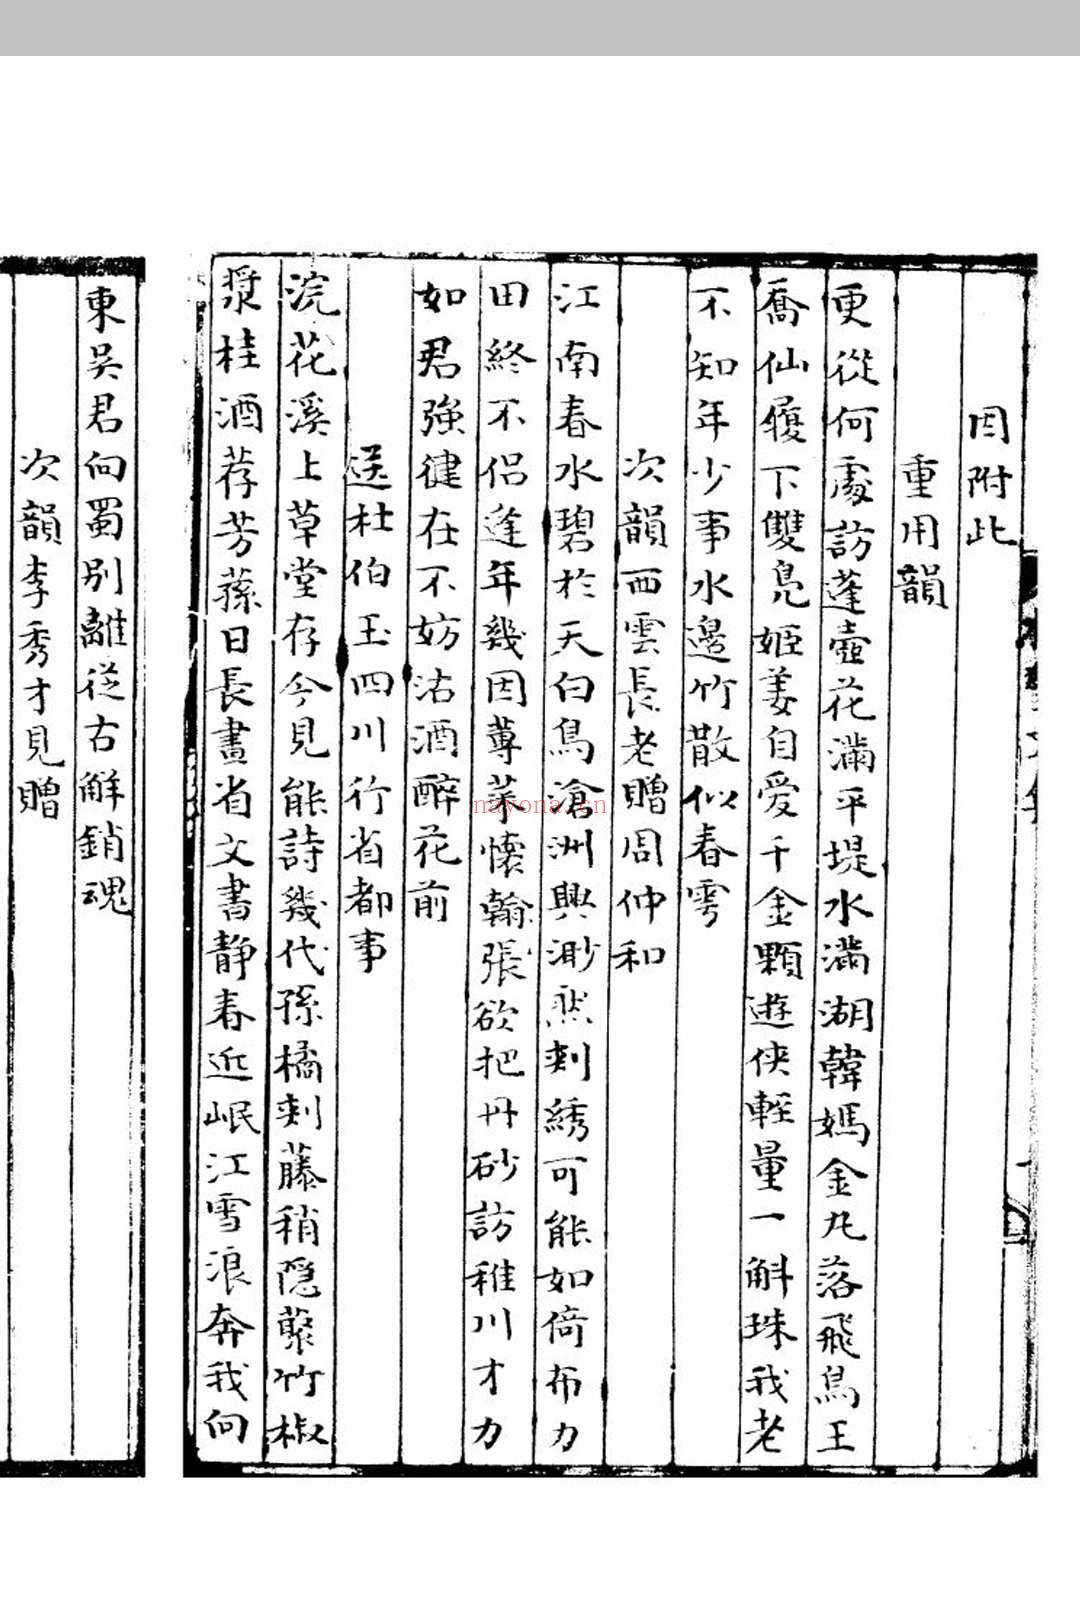 因附此
重用韻
更從何處訪蓬壺花滿平堤水滿湖韓嫣金丸落飛鳥王
喬仙履下雙鳧姬姜自愛千金顆遊俠輕量一斛珠我老
不知年少事水邊竹散似春雩
次韻西雲長老贈周仲和
江南春水碧於天白鳥滄洲興渺然刺綉可能如倚市力
田終不侶逢年幾因蓴菜懷翰張欲把丹砂訪稚川才力
如君強健在不妨沽酒醉花前
送杜伯玉四川行省都事
浣花溪上草堂存今見能詩幾代孫橘刺藤稍隱藂竹椒
漿桂酒荐芳蓀日長畫省文書静春近岷江雪浪奔我向
東吳君向蜀別離從古解銷魂
次韻李秀才見贈
nayona.cn